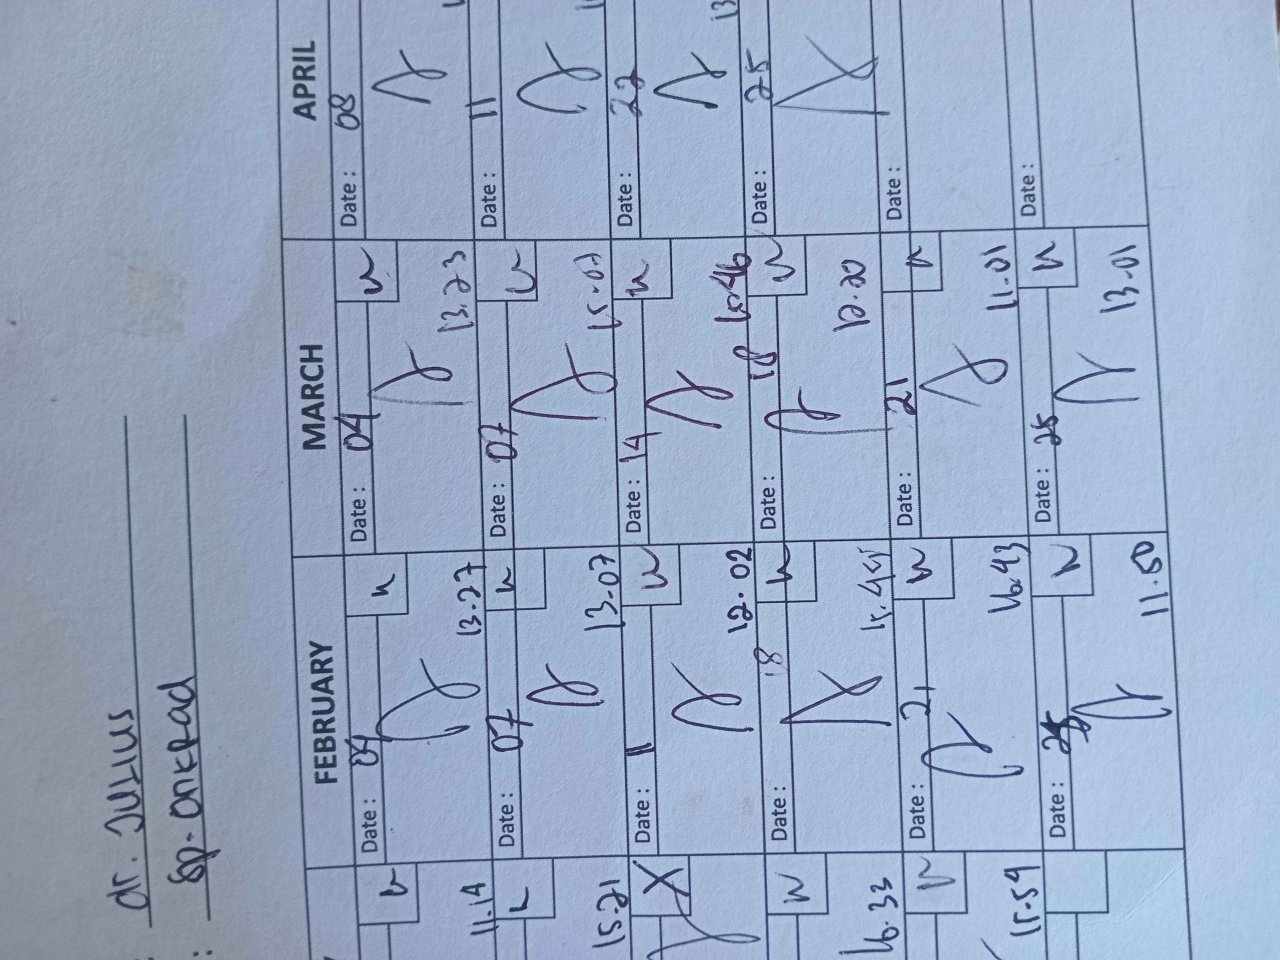 : dr. Julius
: Sp. Onkrad
FEBRUARY
MARCH
APRIL
Date : 04
Date : 04
Date : 08
11.14
13.27
13.23
Date : 07
Date : 07
Date : 11
15.21
13.07
15.07
Date : 11
Date : 14
Date : 22
X
12.02
Date : 18
Date : 18
Date : 25
16.33
12.20
Date : 21
Date : 21
Date :
15.59
16.43
11.01
Date : 25
Date : 25
Date :
11.50
13.01